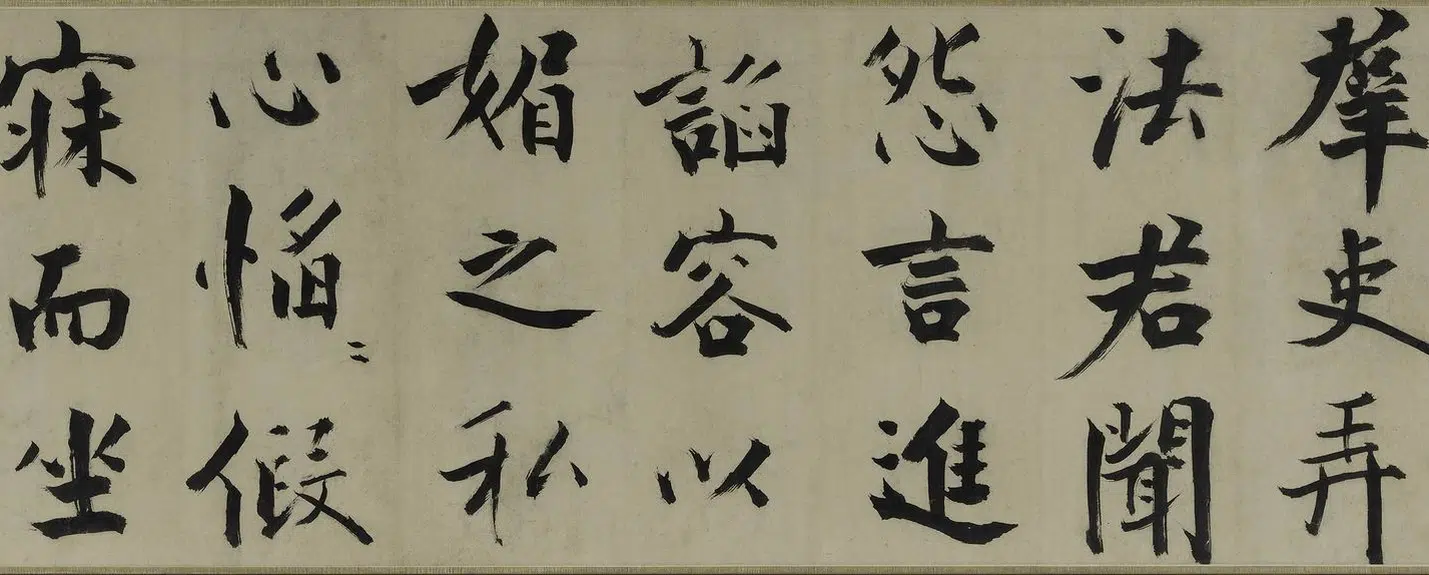 羣吏弄
法君聞
怨言進
諂容以
媚之私
心慆〻假
寐而坐